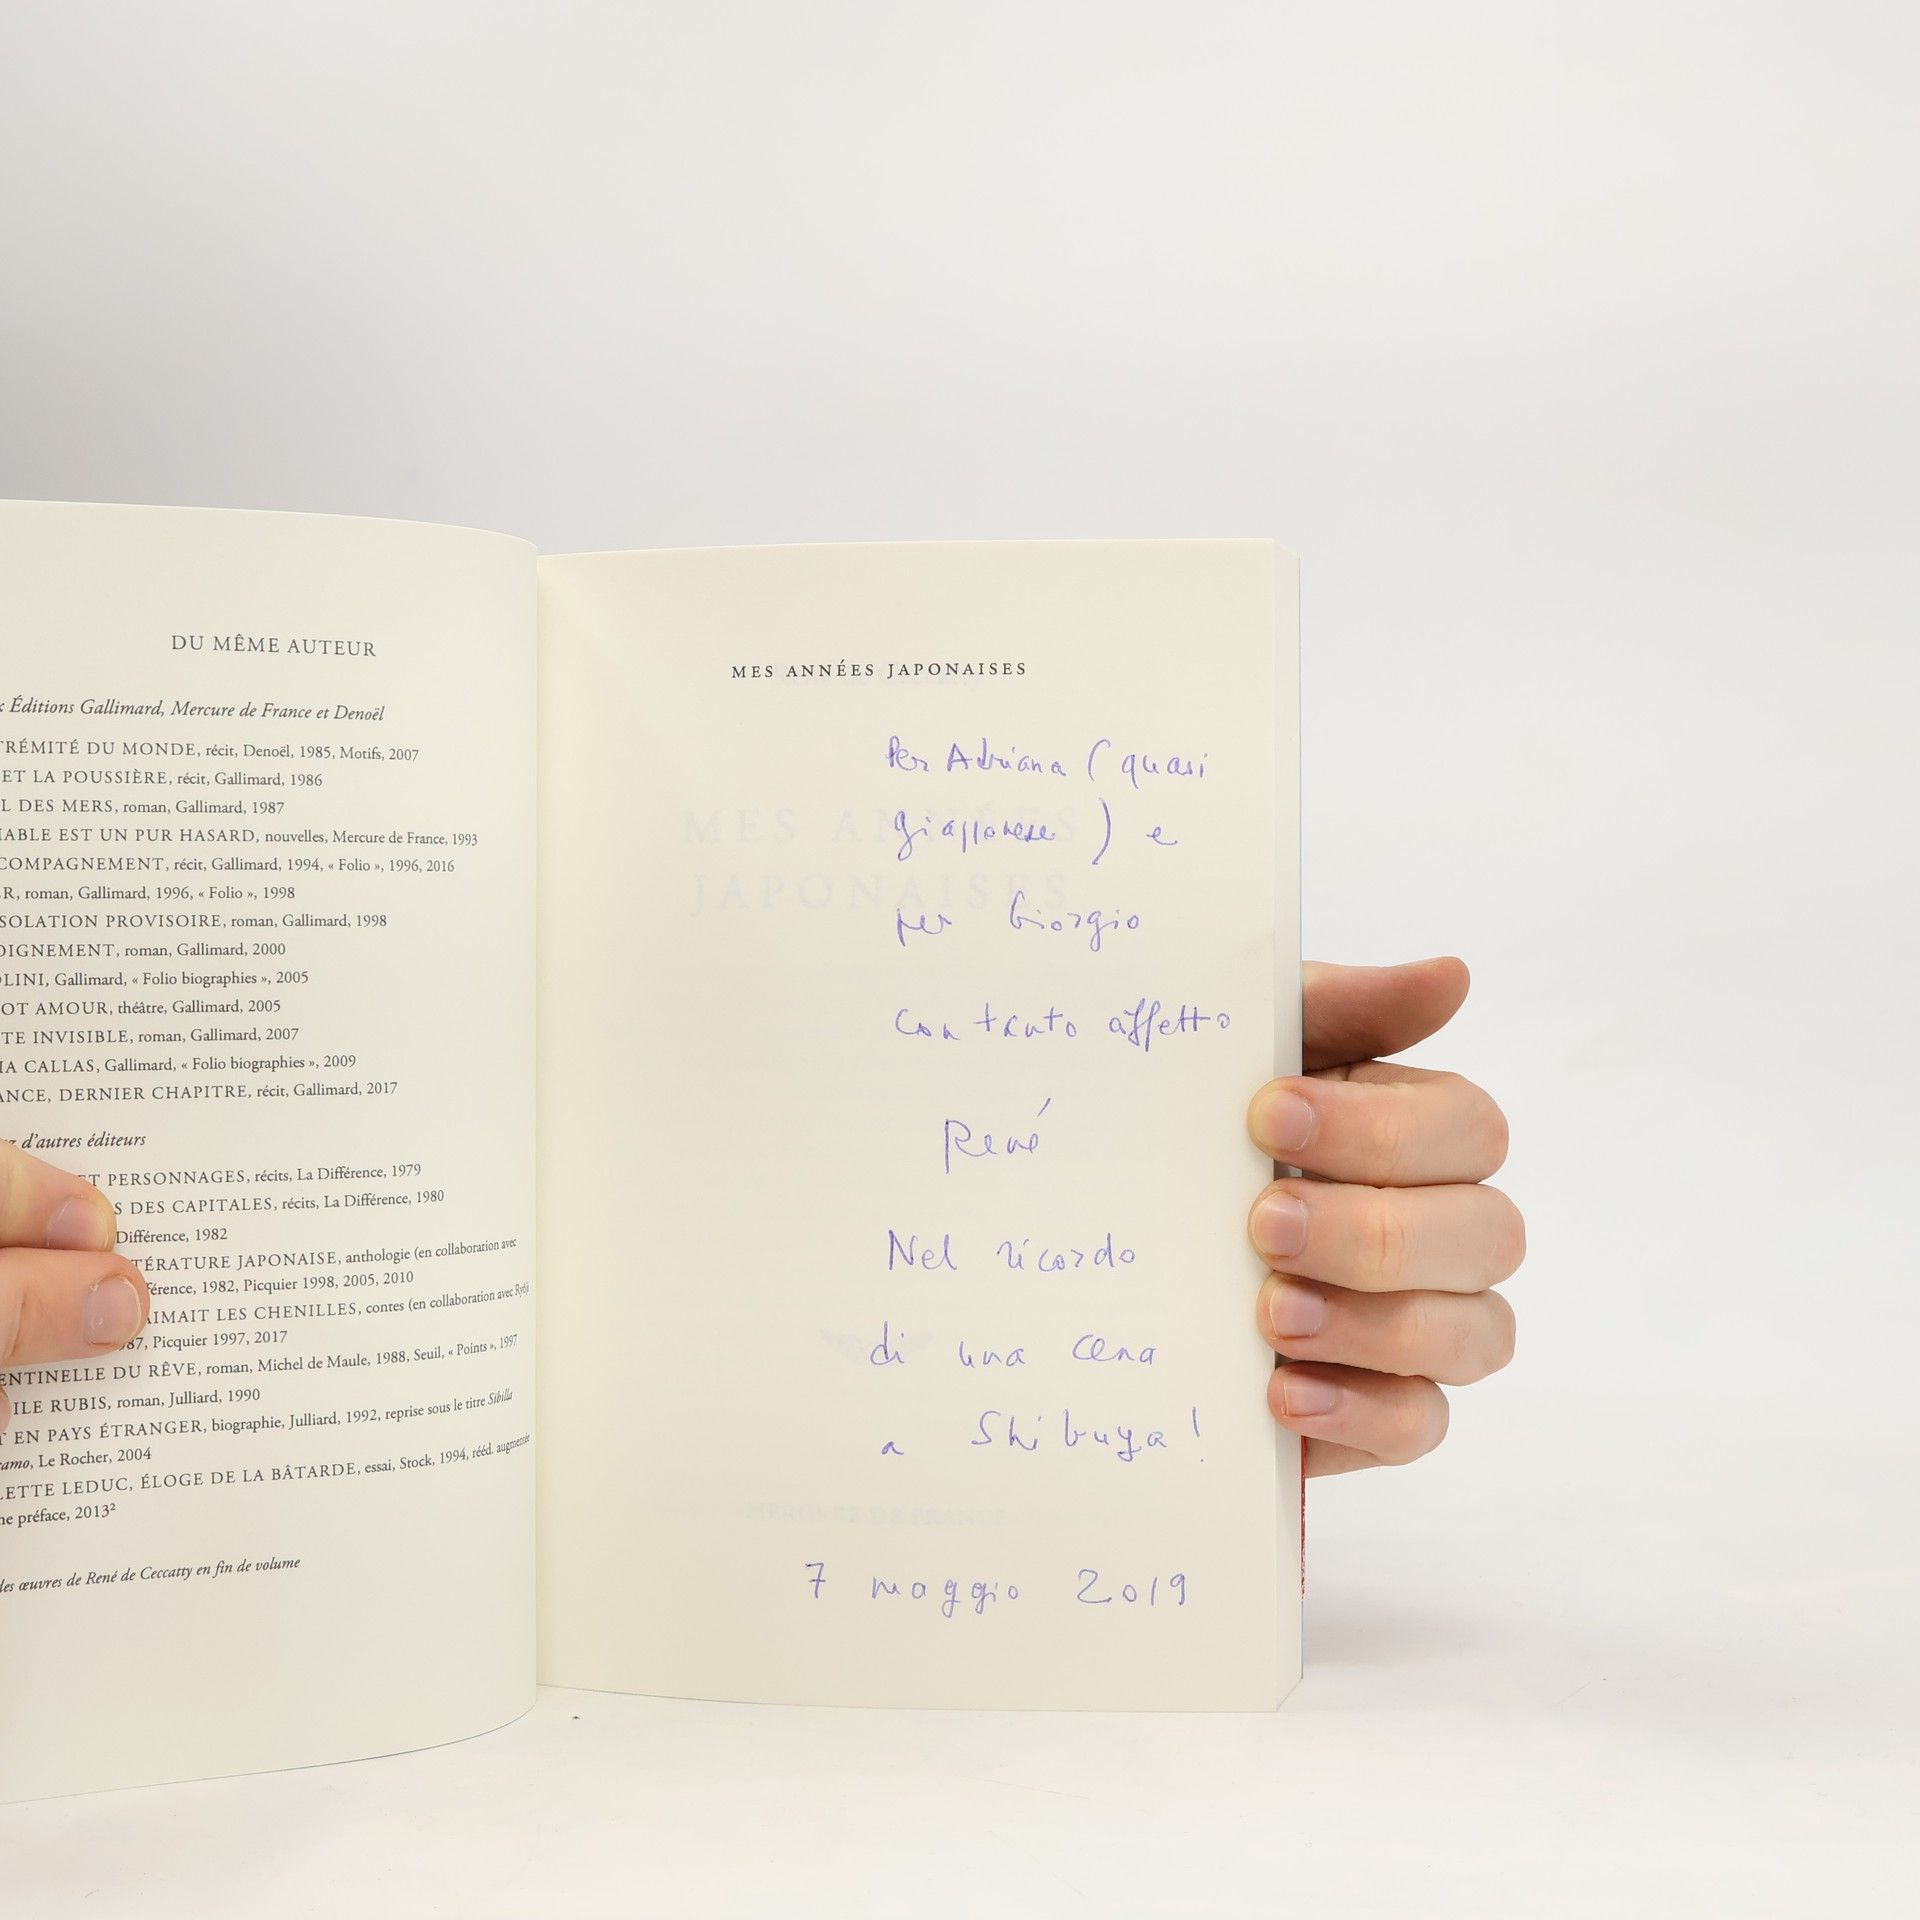 DU MÊME AUTEUR
Éditions Gallimard, Mercure de France et Denoël
TRÉMITÉ DU MONDE, récit, Denoël, 1985, Motifs, 2007
ET LA POUSSIÈRE, récit, Gallimard, 1986
L DES MERS, roman, Gallimard, 1987
IABLE EST UN PUR HASARD, nouvelles, Mercure de France, 1993
COMPAGNEMENT, récit, Gallimard, 1994, « Folio », 1996, 2016
R, roman, Gallimard, 1996, « Folio », 1998
SOLATION PROVISOIRE, roman, Gallimard, 1998
OIGNEMENT, roman, Gallimard, 2000
OLINI, Gallimard, « Folio biographies », 2005
OT AMOUR, théâtre, Gallimard, 2005
TE INVISIBLE, roman, Gallimard, 2007
IA CALLAS, Gallimard, « Folio biographies », 2009
ANCE, DERNIER CHAPITRE, récit, Gallimard, 2017
d'autres éditeurs
ET PERSONNAGES, récits, La Différence, 1979
S DES CAPITALES, récits, La Différence, 1980
Différence, 1982
TÉRATURE JAPONAISE, anthologie (en collaboration avec
férence, 1982, Picquier 1998, 2005, 2010
AIMAIT LES CHENILLES, contes (en collaboration avec Ryôji
87, Picquier 1997, 2017
ENTINELLE DU RÊVE, roman, Michel de Maule, 1988, Seuil, « Points », 1997
ILE RUBIS, roman, Julliard, 1990
T EN PAYS ÉTRANGER, biographie, Julliard, 1992, reprise sous le titre Sibilla
ramo, Le Rocher, 2004
LETTE LEDUC, ÉLOGE DE LA BÂTARDE, essai, Stock, 1994, rééd. augmentée
ne préface, 2013²
des œuvres de René de Ceccatty en fin de volume
MES ANNÉES JAPONAISES
Per Adriana (quasi
giapponese) e
per Giorgio
con tanto affetto
René
Nel ricordo
di una cena
a Shibuya !
7 maggio 2019
MES ANNÉES
JAPONAISES
MERCVRE DE FRANCE